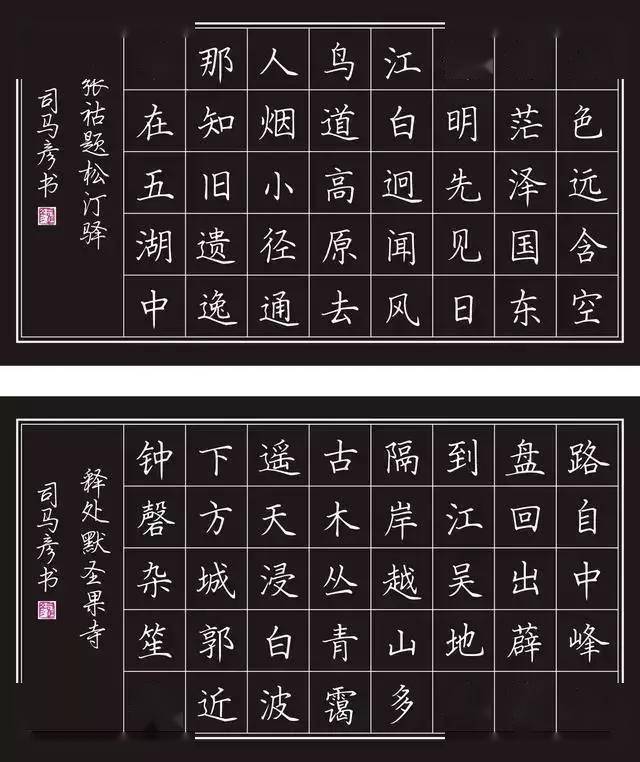 色远含空
茫泽国东
明先见日
江白迥闻风
鸟道高原去
人烟小径通
那知旧遗逸
在五湖中
张祜题松汀驿
司马彦书
路自中峰
盘回出薜
到江吴地
隔岸越山多
古木丛青霭
遥天浸白波
下方城郭近
钟磬杂笙
释处默圣果寺
司马彦书